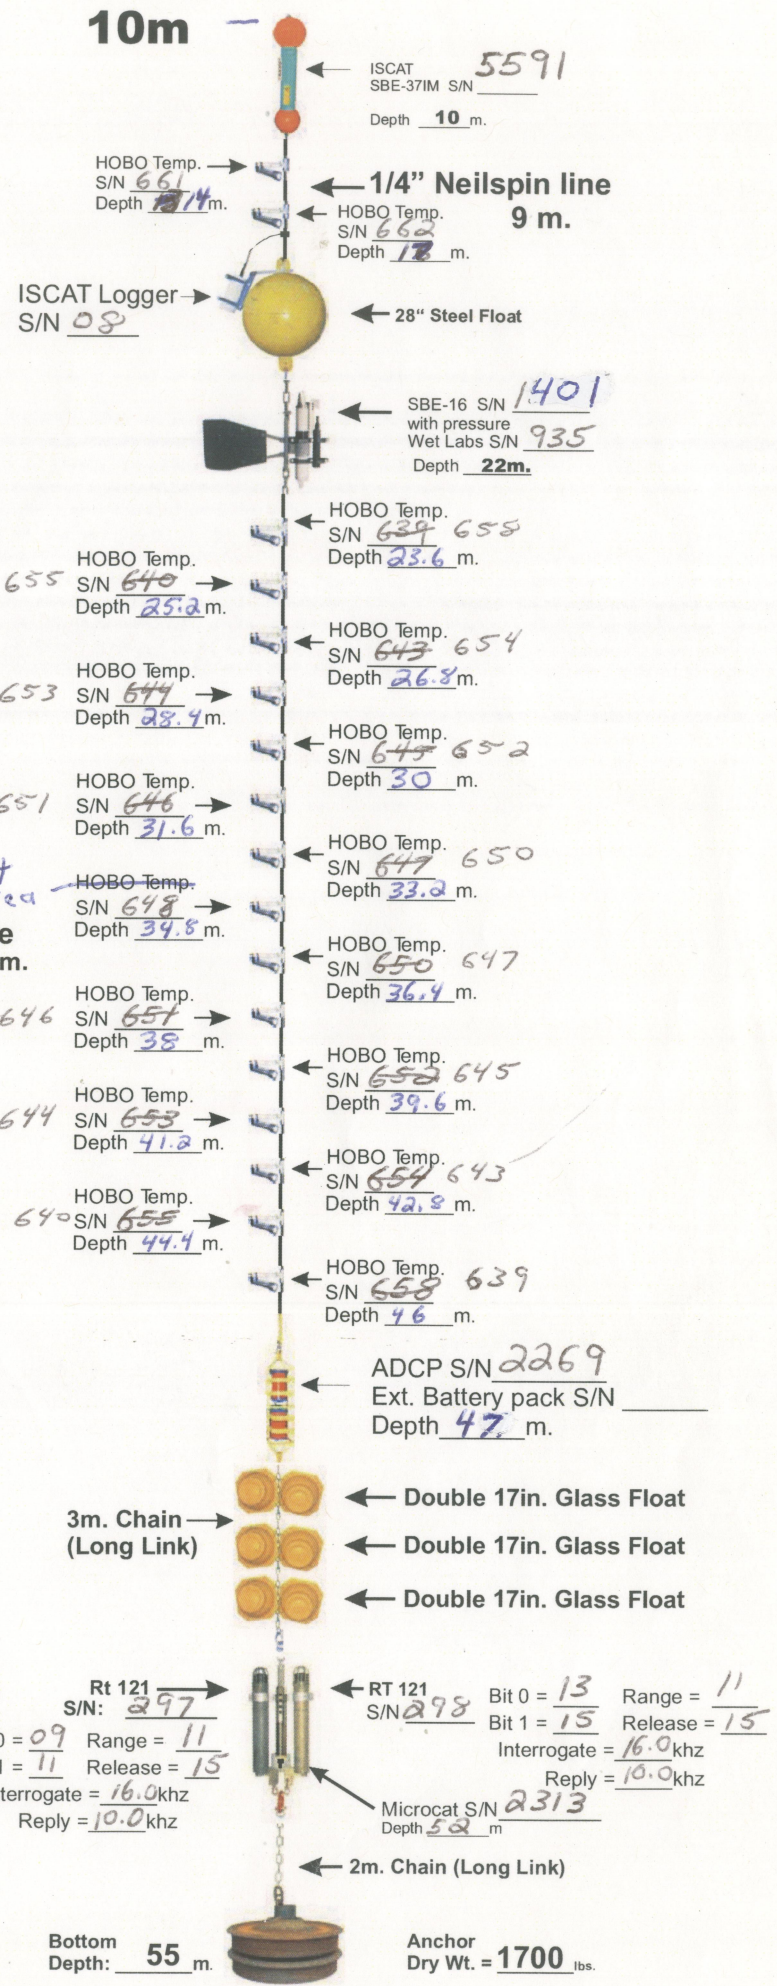 10m
ISCAT 5591
SBE-37IM S/N
Depth 10 m.
HOBO Temp.
S/N 661
Depth 14 m.
1/4” Neilspin line
9 m.
HOBO Temp.
S/N 662
Depth m.
ISCAT Logger
S/N 08
28“ Steel Float
SBE-16 S/N 1401
with pressure
Wet Labs S/N 935
Depth 22m.
HOBO Temp.
S/N 639 658
Depth 23.6 m.
HOBO Temp.
655 S/N 640
Depth 25.2 m.
HOBO Temp.
S/N 643 654
Depth 26.8 m.
HOBO Temp.
653 S/N 644
Depth 28.4 m.
HOBO Temp.
S/N 645 652
Depth 30 m.
HOBO Temp.
651 S/N 646
Depth 31.6 m.
HOBO Temp.
S/N 647 650
Depth 33.2 m.
HOBO Temp.
S/N 648
Depth 34.8 m.
e
m.
HOBO Temp.
S/N 650 647
Depth 36.4 m.
HOBO Temp.
646 S/N 651
Depth 38 m.
HOBO Temp.
S/N 652 645
Depth 39.6 m.
HOBO Temp.
644 S/N 653
Depth 41.2 m.
HOBO Temp.
S/N 654 643
Depth 42.8 m.
HOBO Temp.
640 S/N 655
Depth 44.4 m.
HOBO Temp.
S/N 658 639
Depth 46 m.
ADCP S/N 2269
Ext. Battery pack S/N
Depth 47 m.
Double 17in. Glass Float
3m. Chain
(Long Link)
Double 17in. Glass Float
Double 17in. Glass Float
Rt 121
S/N: 297
0 = 09 Range = 11
1 = 11 Release = 15
terrogate = 16.0 khz
Reply = 10.0 khz
RT 121
S/N 298
Bit 0 = 13 Range = 11
Bit 1 = 15 Release = 15
Interrogate = 16.0 khz
Reply = 10.0 khz
Microcat S/N 2313
Depth 52 m
2m. Chain (Long Link)
Bottom
Depth: 55 m.
Anchor
Dry Wt. = 1700 lbs.